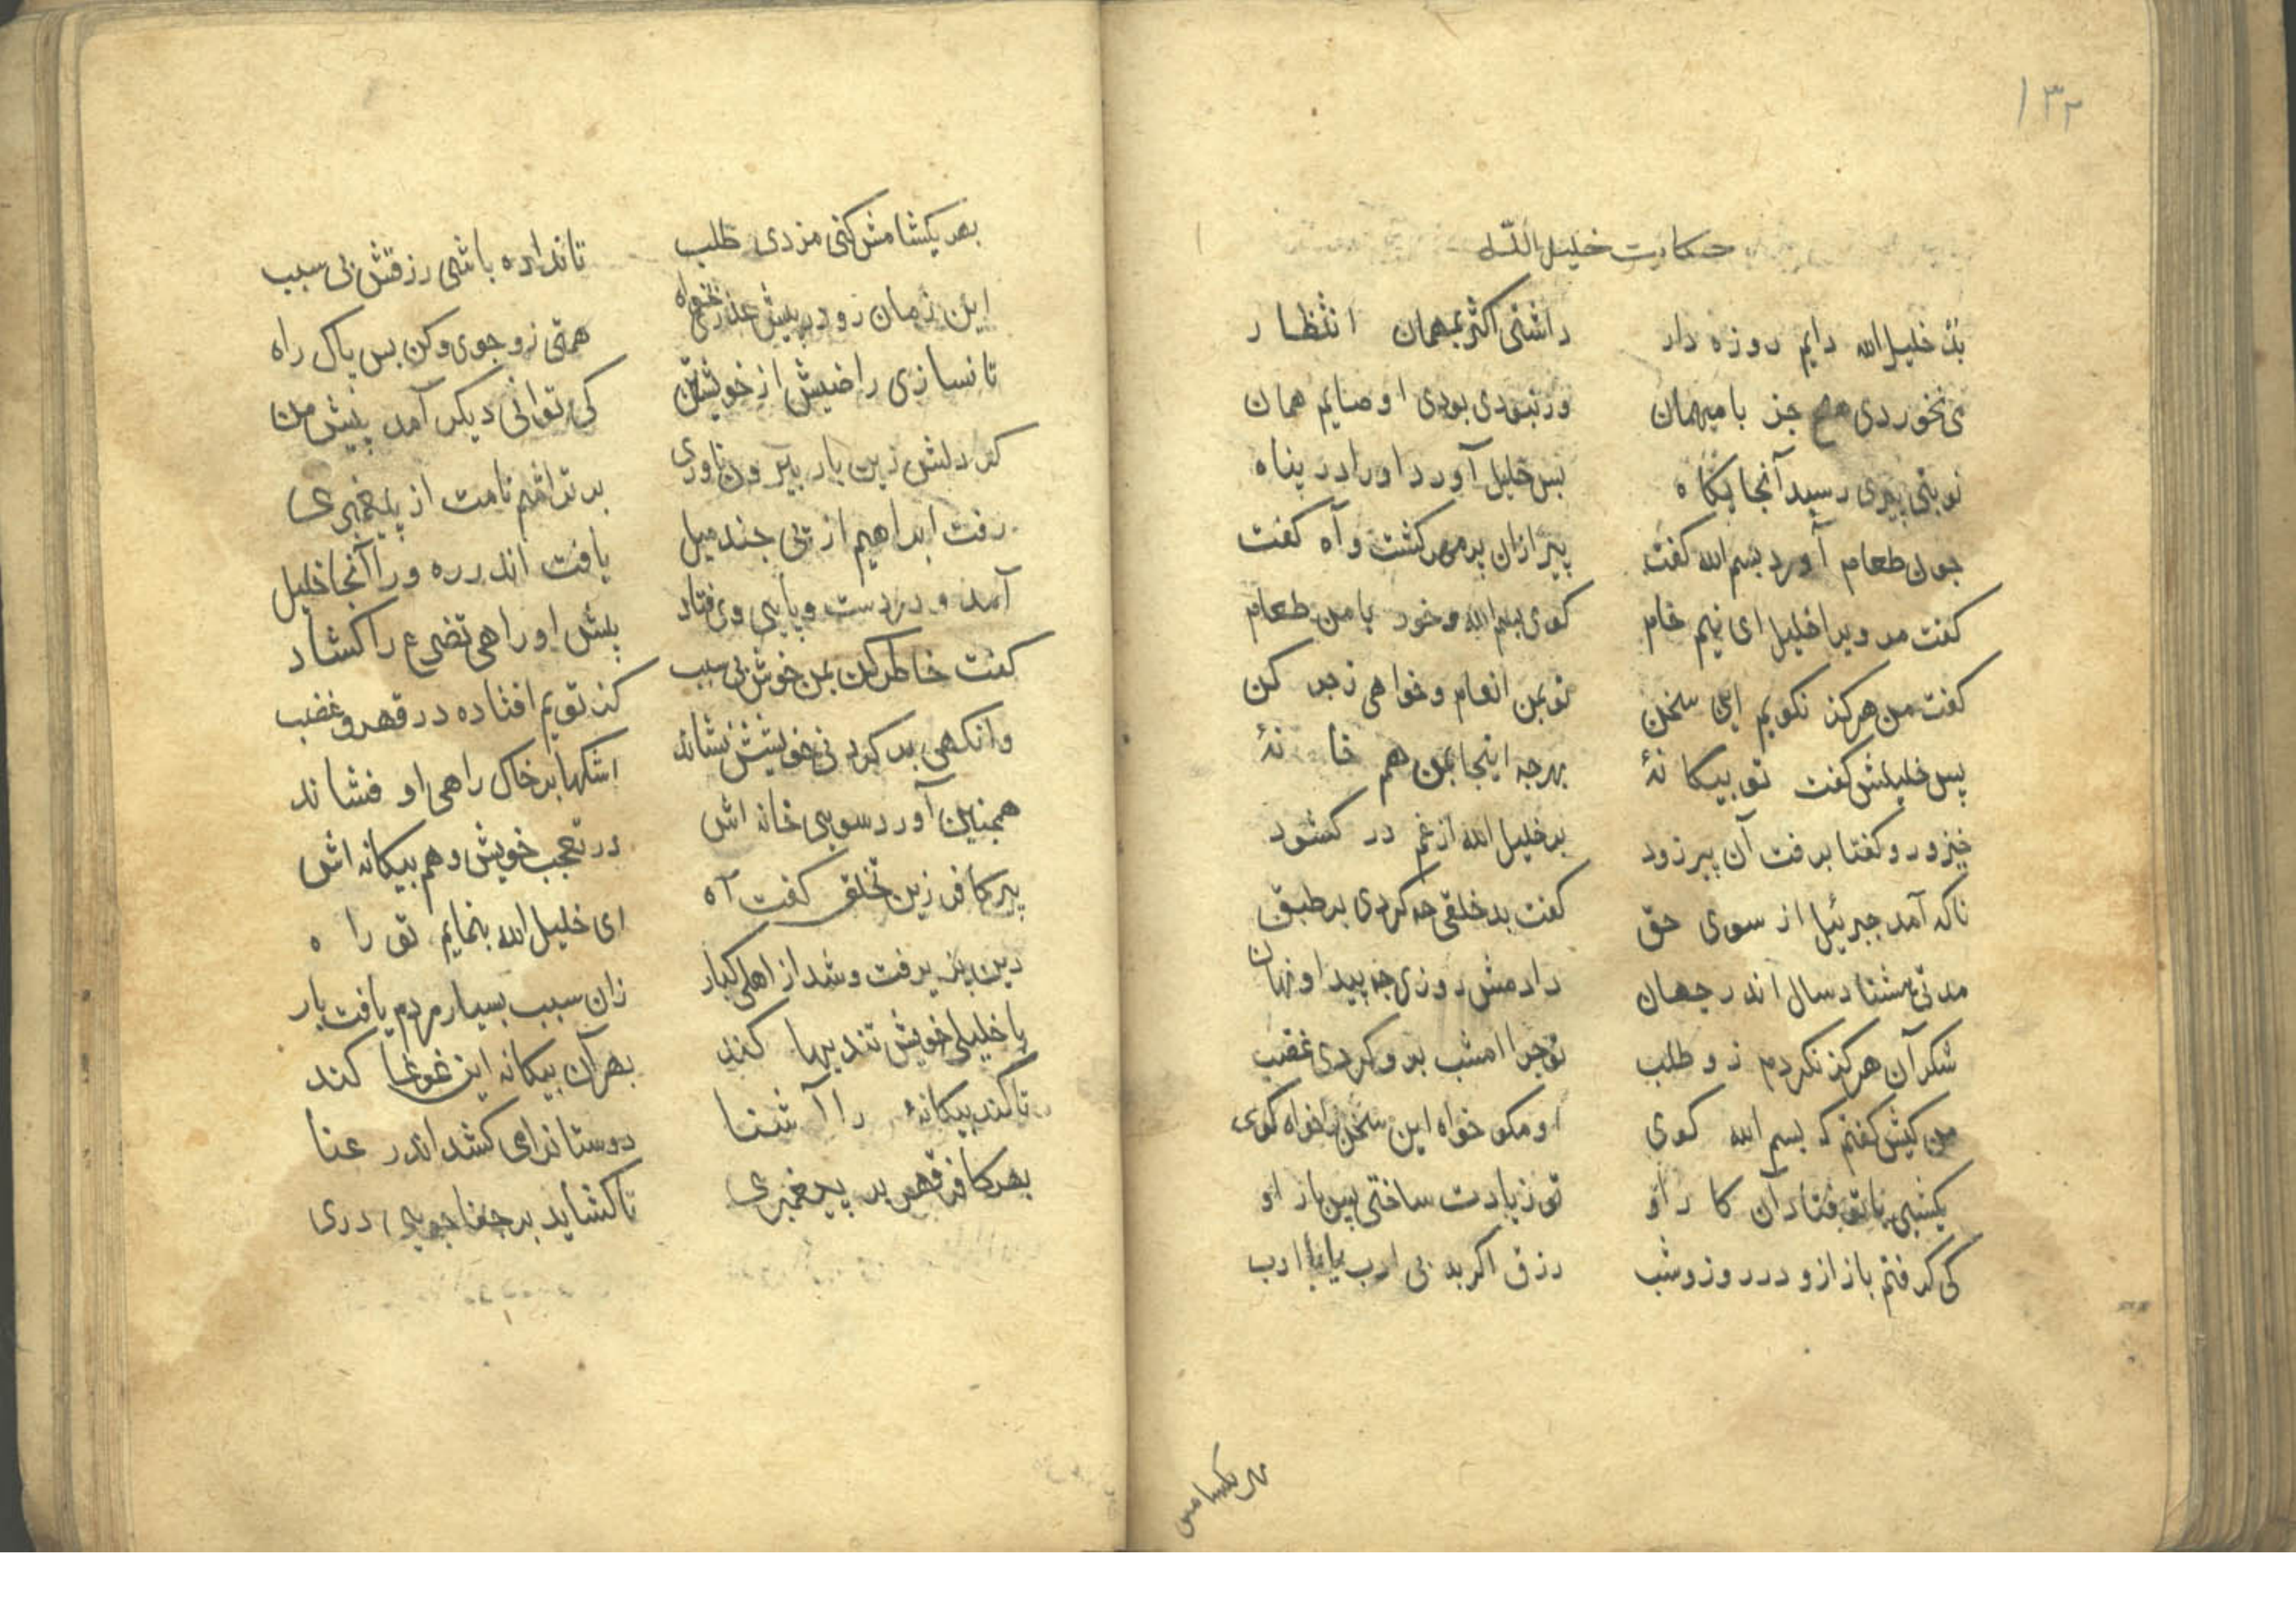 ۱۳۲
حکایت خلیل الله
بد خلیل الله دایم روزه دار داشتی اکثر بمهمان انتظار
می نخوردی هیچ جز با میهمان ور نبودی بودی او صایم همان
نوبتی پیری رسید آنجایکاه بس خلیل آورد او را در پناه
جون طعام آورد بسم الله کفت پیر ازان بر می کشت و آه کفت
کفت مر ویرا خلیل ای نیم خام کوی بسم الله و خور با من طعام
کفت من هرکز نکویم این سخن تو بمن انعام و خواهی زجر کن
پس خلیلش کفت تو بیکانهٔ بهرجه اینجا بمن هم خانهٔ
خیز و رو کفتا برفت آن پیر زود بر خلیل الله از غم در کشود
ناکه آمد جبرئیل از سوی حق کفت بد خلقی جه کردی بر طبق
مدتی هشتاد سال اندر جهان دادمش روزی جه پیدا و نهان
شکر آن هرکز نکردم زو طلب تو جرا امشب برو کردی غضب
من کیش کفتم که بسم الله کوی او مکو خواه این سخن یا خواه کوی
یکشبی با تو فتاد آن کار او تو زیادت ساختی بس بار او
کی کرفتم باز ازو در روز و شب رزق اکر بد بی ادب یا با ادب
بهر یکشامش
بهر یکشامش کنی مزدی طلب تا نداده باشی رزقش بی سبب
این زمان رو در پیش عذرش بخواه همتی زو جوی و کن بس پاک راه
تا نسازی راضیش از خویشتن کی توانی دیکر آمد پیش من
کر دلش زین بار بیرون ناوری بر تراشم نامت از پیغمبری
رفت ابراهیم از پی جند میل یافت اندر ره ورا آنجا خلیل
آمد و در دست و پایی وی فتاد پیش او راهی تضرع را کشاد
کفت خاطر کن بمن خوش بی سبب کز تویم افتاده در قهر و غضب
وانکهی بر کردنی خویشش نشاند اشکها بر خاک راهی او فشاند
همجنین آورد سویی خانه اش در تعجب خویش و هم بیکانه اش
پیر کافر زین تخلق کفت آه ای خلیل الله بنمایم تو راه
دین پذیرفت و شد از اهل کبار زان سبب بسیار مردم یافت بار
با خلیلی خویش تندیها کند بهر آن بیکانه این غوغا کند
تا کند بیکانهٔ را آشنا دوستانرا می کشد اندر عنا
بهر کافر قهر بر پیغمبری تا کشاید بر جفا جویی دری